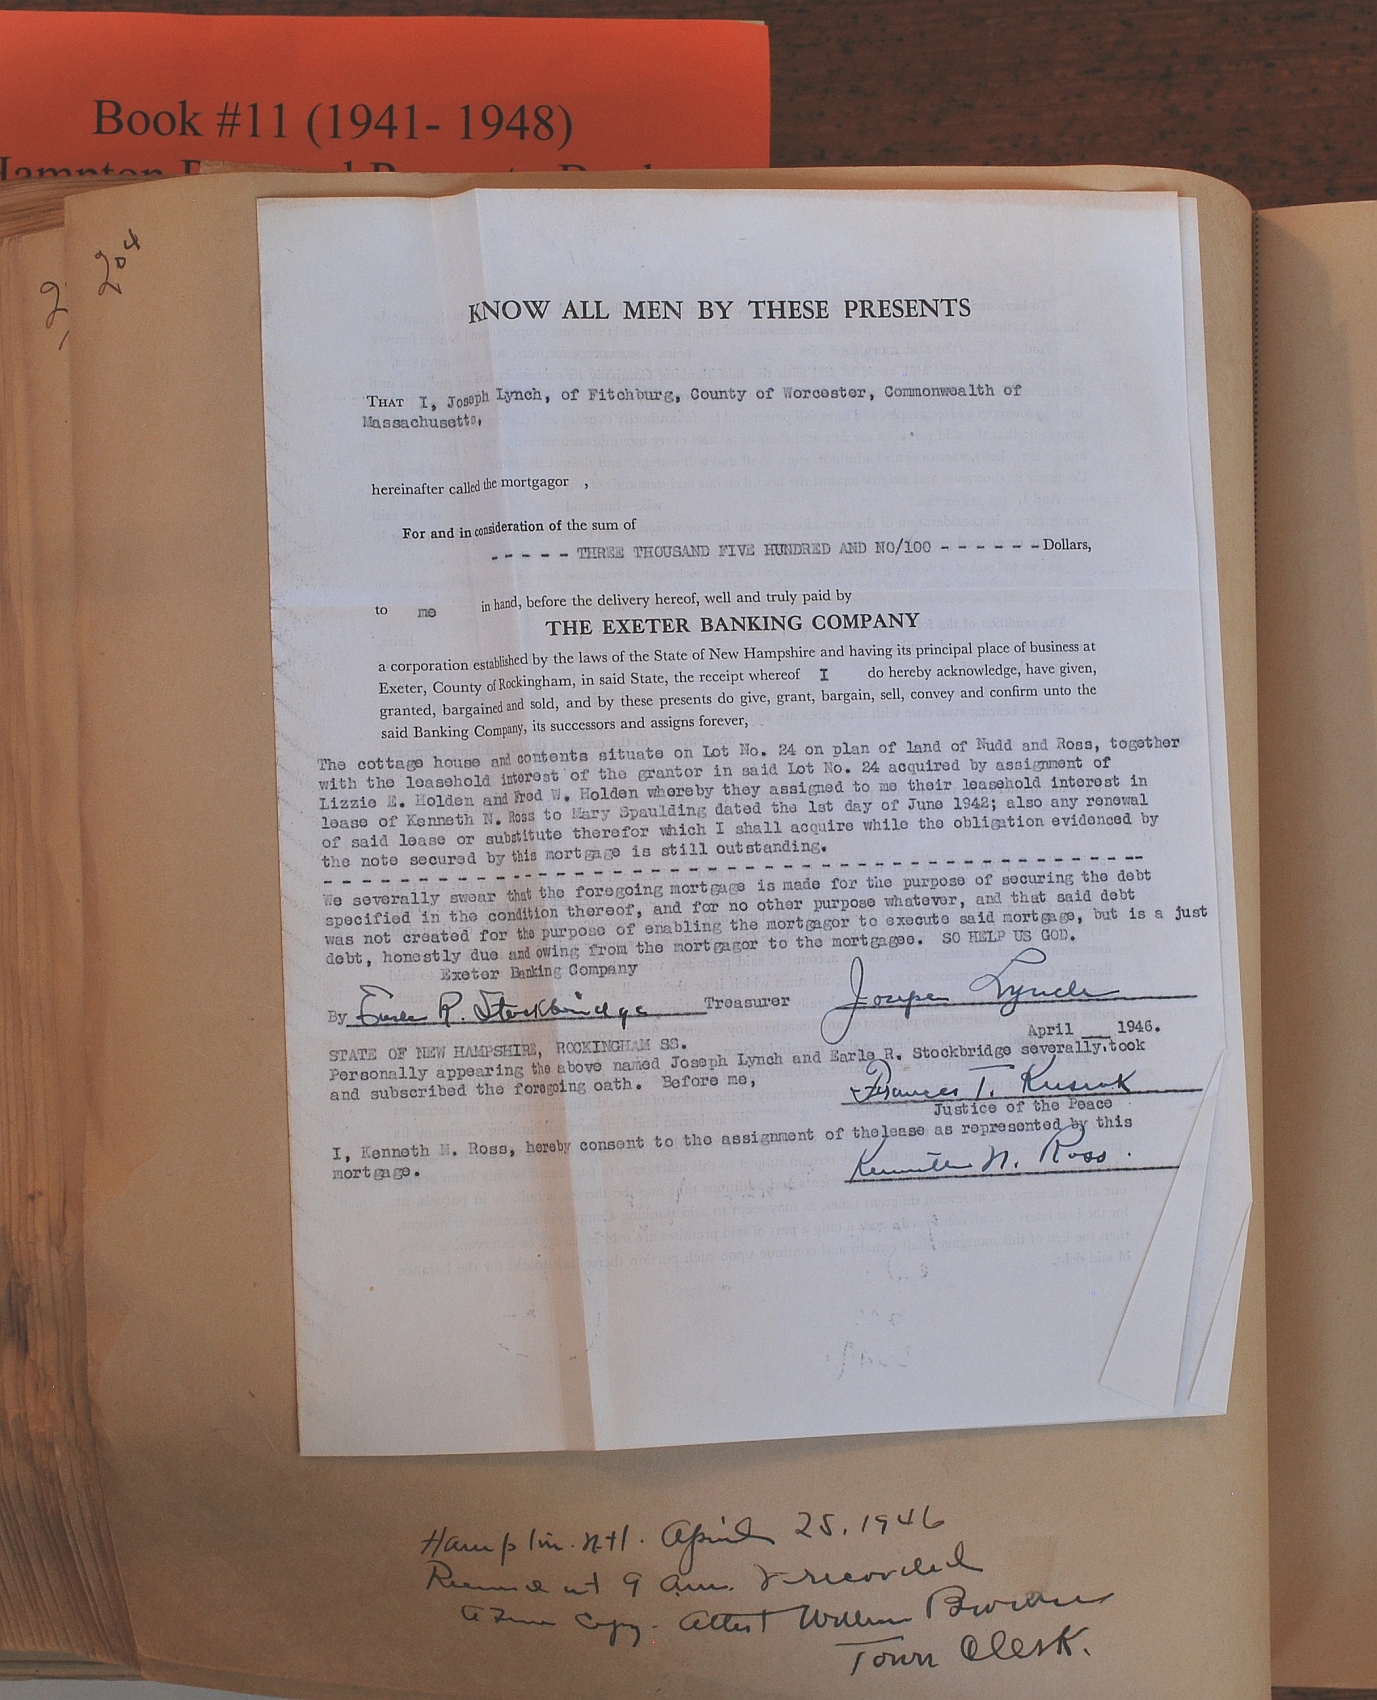 Book #11 (1941- 1948)
204
2
KNOW ALL MEN BY THESE PRESENTS
THAT I, Joseph Lynch, of Fitchburg, County of Worcester, Commonwealth of
Massachusetts,
hereinafter called the mortgagor ,
For and in consideration of the sum of
- - - - - THREE THOUSAND FIVE HUNDRED AND NO/100 - - - - - - Dollars,
to me in hand, before the delivery hereof, well and truly paid by
THE EXETER BANKING COMPANY
a corporation established by the laws of the State of New Hampshire and having its principal place of business at
Exeter, County of Rockingham, in said State, the receipt whereof I do hereby acknowledge, have given,
granted, bargained and sold, and by these presents do give, grant, bargain, sell, convey and confirm unto the
said Banking Company, its successors and assigns forever,
The cottage house and contents situate on Lot No. 24 on plan of land of Nudd and Ross, together
with the leasehold interest of the grantor in said Lot No. 24 acquired by assignment of
Lizzie E. Holden and Fred W. Holden whereby they assigned to me their leasehold interest in
lease of Kenneth N. Ross to Mary Spaulding dated the 1st day of June 1942; also any renewal
of said lease or substitute therefor which I shall acquire while the obligation evidenced by
the note secured by this mortgage is still outstanding.
We severally swear that the foregoing mortgage is made for the purpose of securing the debt
specified in the condition thereof, and for no other purpose whatever, and that said debt
was not created for the purpose of enabling the mortgagor to execute said mortgage, but is a just
debt, honestly due and owing from the mortgagor to the mortgagee. SO HELP US GOD.
Exeter Banking Company
By Earle R. Stockbridge Treasurer Joseph Lynch
April ___ 1946.
STATE OF NEW HAMPSHIRE, ROCKINGHAM SS.
Personally appearing the above named Joseph Lynch and Earle R. Stockbridge severally took
and subscribed the foregoing oath. Before me,
Frances T. Kusiak
Justice of the Peace
I, Kenneth N. Ross, hereby consent to the assignment of the lease as represented by this
mortgage.
Kenneth N. Ross.
Hampton. N.H. April 25. 1946
Received at 9 a.m. & recorded
A True Copy. Attest William Brown
Town Clerk.